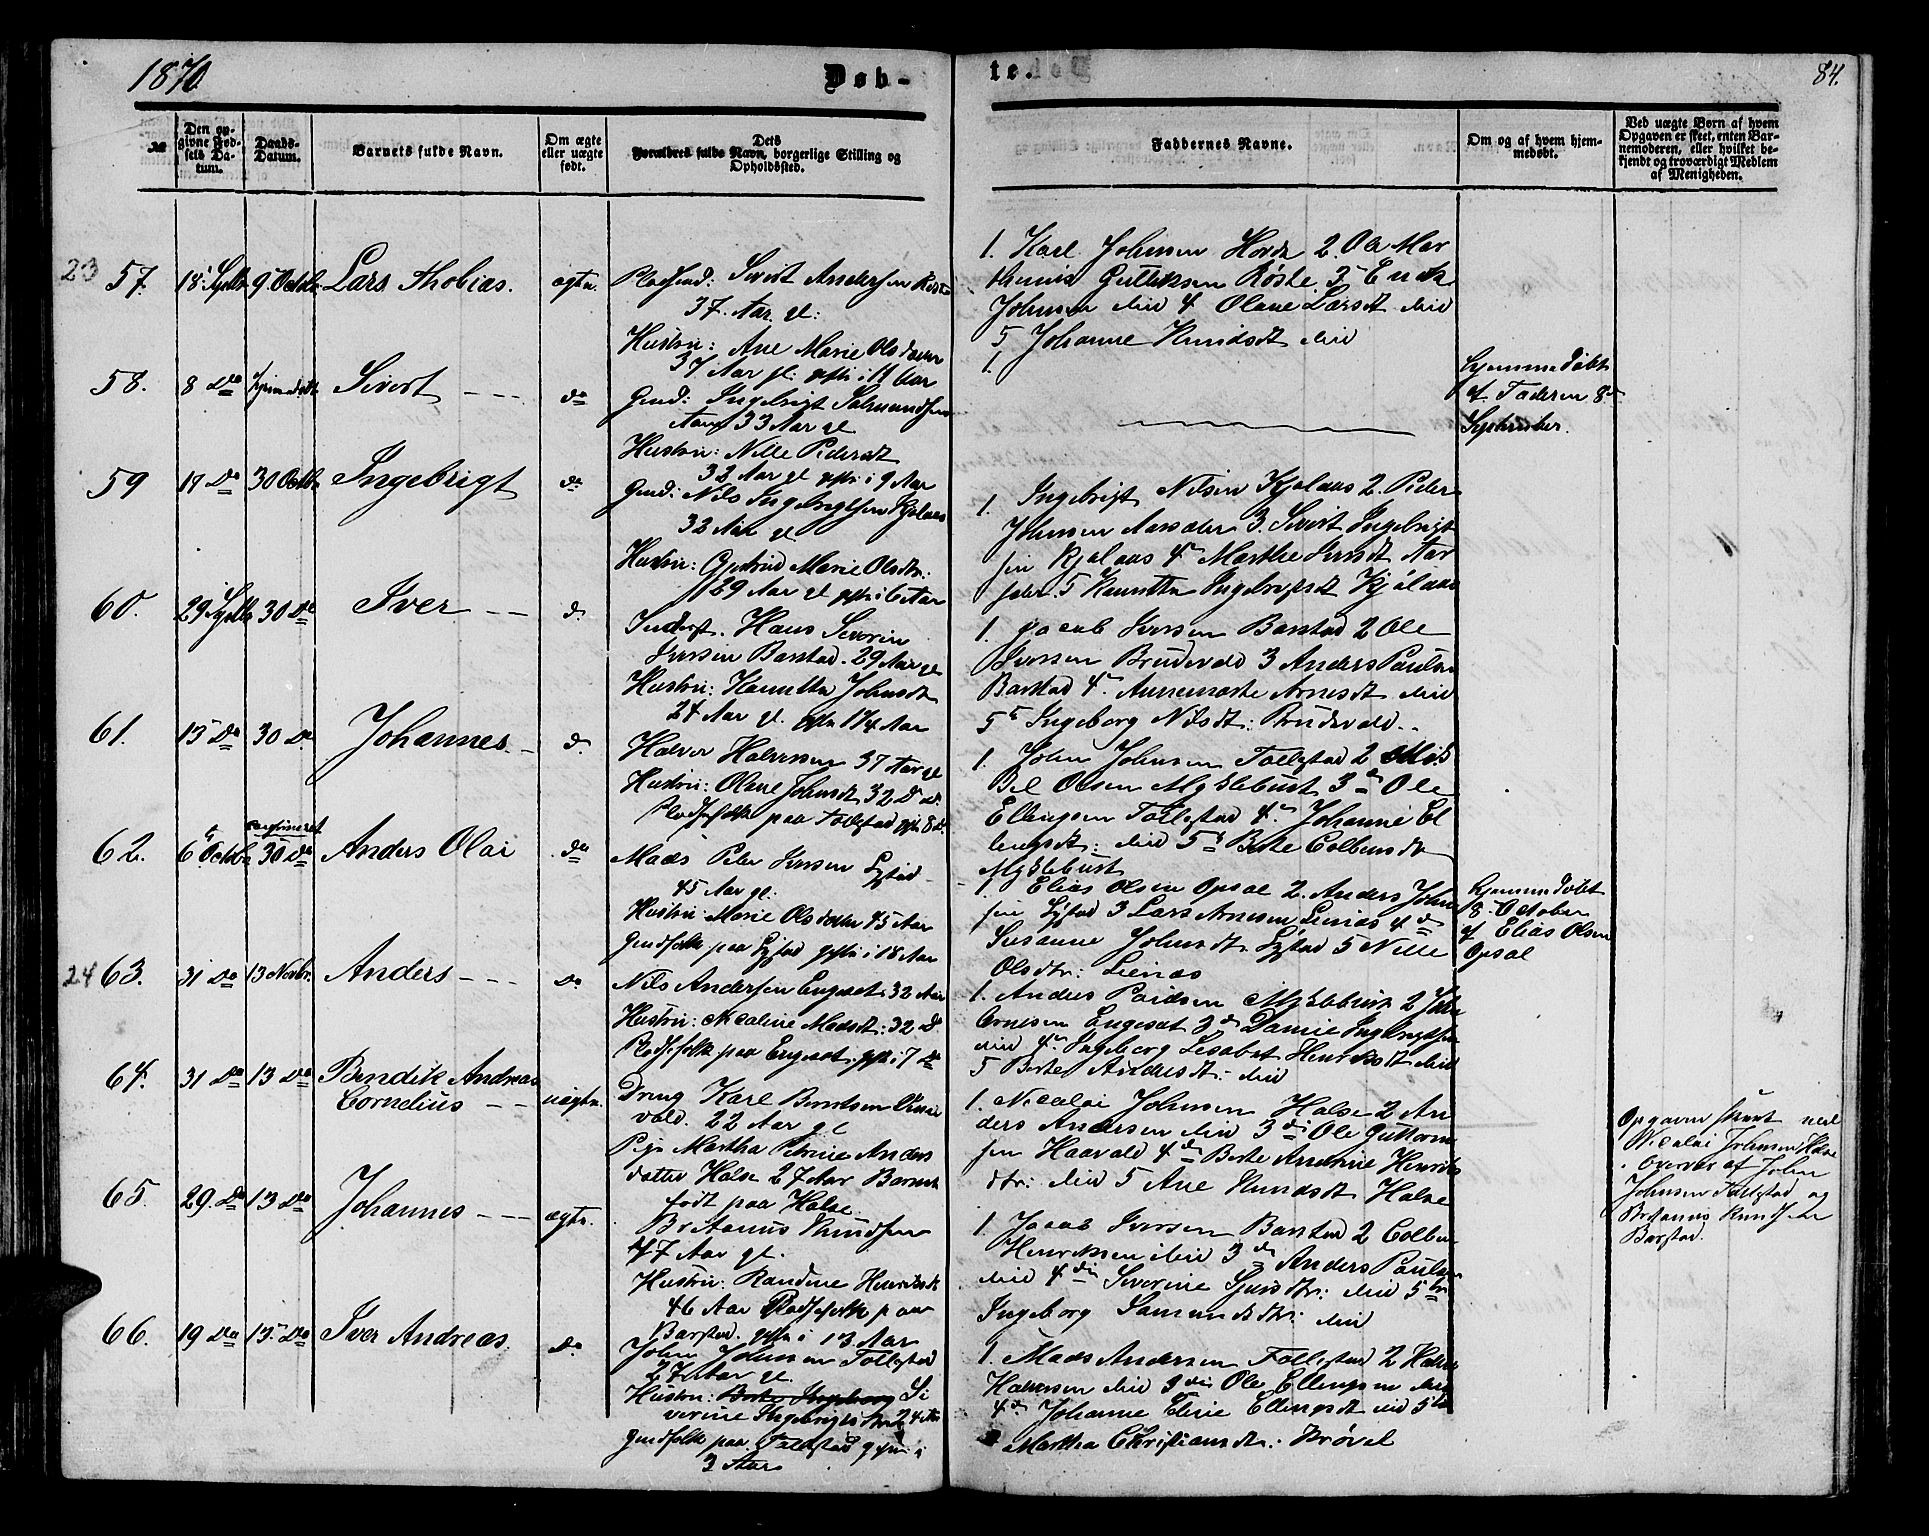 1870
Døb-
te.
84.
№
Den op-
givne Fød-
sels Da-
tum.
Daabs-
Datum.
Barnets fulde Navn.
Om ægte
eller uægte
født.
Dets
Forældres fulde Navn, borgerlige Stilling og
Opholdssted.
Faddernes Navne.
Om og af hvem hjem-
medøbt.
Ved uægte Børn af hvem
Opgaven er skeet, enten Bar-
nemoderen, eller hvilket be-
kjendt og troværdigt Medlem
af Menigheden.
23
57. 18 Septb 9 Octb. Lars Thobias. ægte.
Sivert Andersen
37. Aar gl:
Hustru: Ane Marie Olsdatter
37 Aar gl. gift i 11 Aar
1. Karl Johnsen 2. Ole Mar
Gutteksen Røste 3 Enok
Johnsen ibid 4 Olave Larsdt ibid
5 Johanne Knudsdt ibid
58. 8 Do hjemmedøbt Sivert Do
Gmd: Ingebrigt Salmundsen
33 Aar gl
Hustru: Nille Pedersdt
32 Aar gl gift i 9 Aar
1.
hjemmedøbt
af Faderen 8de
September.
59 17 Do 30 Octb. Ingebrigt Do
Gmd: Nils Ingebrigtsen Kjølaas
32 Aar gl
Hustru: Gjertrud Marie Olsdtr.
29 Aar gl gift i 6 Aar
1. Ingebrigt Nilsen Kjølaas 2. Peder
Johnsen Aarsæter 3. Sivert Ingebrigt
sen Kjølaas 4 Marthe Iversdt Aar
sæter. 5 Ingebrigtsdt Kjølaas
60. 29 Septb 30 Do Iver Do
Inderst. Hans Severin
Iversen Barstad. 29 Aar gl
Hustru: Johnsdt
24 Aar gl. gift 1¼ Aar
1. Jacob Iversen Barstad 2 Ole
Iversen Brudevold 3 Anders Paulsen
Barstad 4. Annemarte Arnesdt ibid
5 Ingeborg Nilsdt: Brudevold.
61. 13 Do 30 Do Johannes Do
Halvor Halvorsen 37 Aar gl
Hustru: Olave Johnsdt 32 Do
Pladsfolk paa Follestad gift 8
1. John Johnsen Follestad 2 Mik
kel Olsen Myklebust 3 Ole
Ellingsen Follestad 4. Johanne El
lingsdt: ibid 5 Berte Colbensdt
Myklebust
62. 6 Octb. 30 Do Anders Olai Do
Mads Peter Iversen
45 Aar gl.
Hustru: Marie Olsdatter 45 Aar
Gmdfolk paa gift i 18 Aar
1. Elias Olsen Opsal 2. Anders John
sen 3 Lars Arnesen 4
Susanne Johnsdt 5 Nille
Olsdtr:
hjemmedøbt
8. October
af Elias Olsen
Opsal
24
63. 31 Do 13 Novbr. Anders Do
Nils Andersen Engeset 32 Aar
Hustru: Nicoline Madsdt: 32 Do
Pladsfolk paa Engeset gift i 7 Do
1. Anders Myklebust 2 John
Arnesen Engeset 3 Ingebrigtsen
ibid 4. Ingeborg Lisabet Henriksdt ibid
5 Berte Andersdt: ibid
64. 31 Do 13 Do Bendik Andreas
Cornelius uægte.
Dreng Karl Berntsen
22 Aar gl
Pige Martha Petrine Anders
datter Halse 27 Aar Barnet
født paa Halse
1. Nicolai Johnsen Halse 2 An
ders Andersen ibid 3 Ole Guttorm
sen Haavold 4 Berte Henriks
dtr: ibid 5 Ane Knudsdt Halse
Opgaven skeet ved
Nicolai Johnsen Halse
Overvær af John
Johnsen Follestad og
Britanus Knudsen
Barstad.
65. 29 Do 13 Do Johannes ægte.
Britanus Knudsen
47 Aar gl.
Hustru: Randine Henriksdt
46 Aar Pladsfolk paa
Barstad. gift i 13 Aar
1. Jacob Iversen Barstad 2 Colben
Henriksen ibid 3 Anders Paulsen
ibid 4 Severine ibid 5
Ingeborg Samundsdtr: ibid
66. 19 Do 13 Do Iver Andreas. Do
John Johnsen Follestad
27 Aar gl.
Hustru: Berte Ingeborg Si
verine Ingebrigtsdt 24 Aar
Gmdfolk paa Follestad gift i
3 Aar
1. Mads Andersen Follestad 2 Halvor
Halvorsen ibid 3 Ole Ellingsen ibid
4 Johanne Eline Ellingsdt ibid 5
Martha Christiansdt: Krøvel